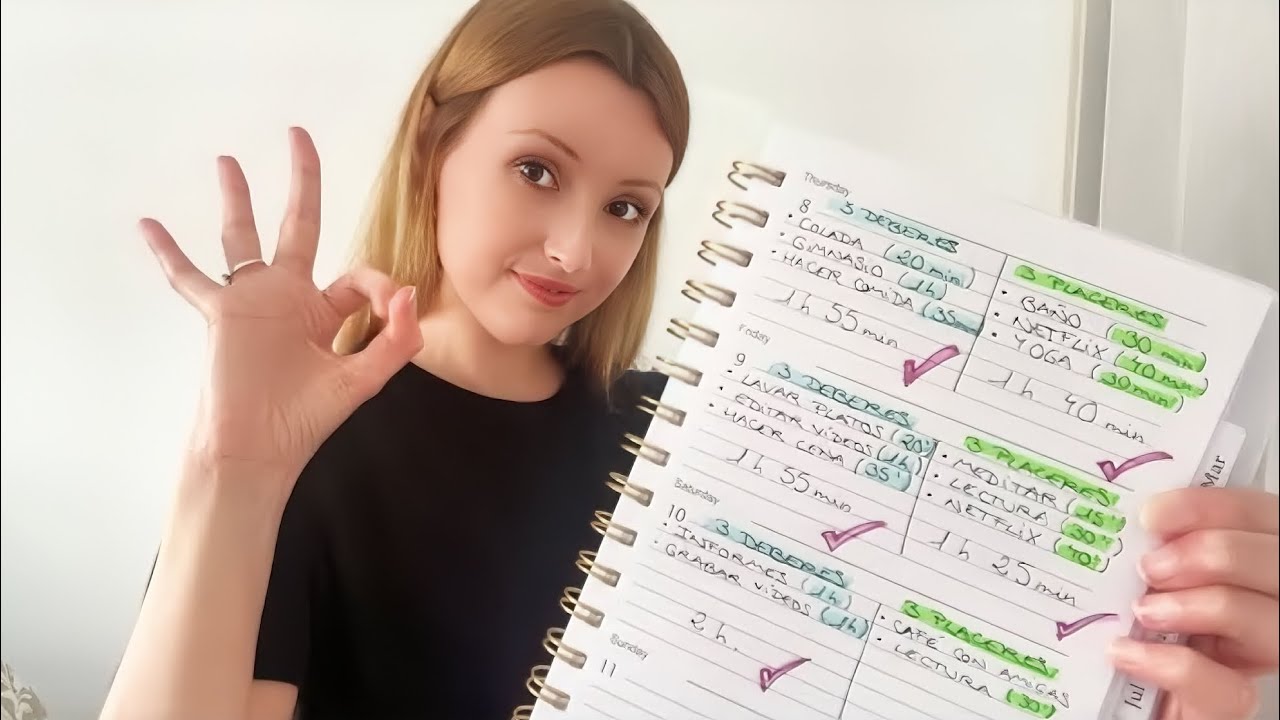 Thursday
8
3 DEBERES
• COLADA (20 min)
• GIMNASIO (1h)
• HACER COMIDA (35 min
1 h 55 min
3 PLACERES
• BAÑO (30 min)
• NETFLIX (40 min)
• YOGA (30 min)
1 h 40 min
Friday
9
3 DEBERES
• LAVAR PLATOS (20'
• EDITAR VÍDEOS (1h)
• HACER CENA (35'
1 h 55 min
3 PLACERES
• MEDITAR (15')
• LECTURA (30')
• NETFLIX (40')
1 h 25 min
Saturday
10
3 DEBERES
• INFORMES (1h)
• GRABAR VÍDEOS (1h)
2 h.
3 PLACERES
• CAFÉ CON AMIGAS
• LECTURA (30')
Sunday
11
Mar
Jul